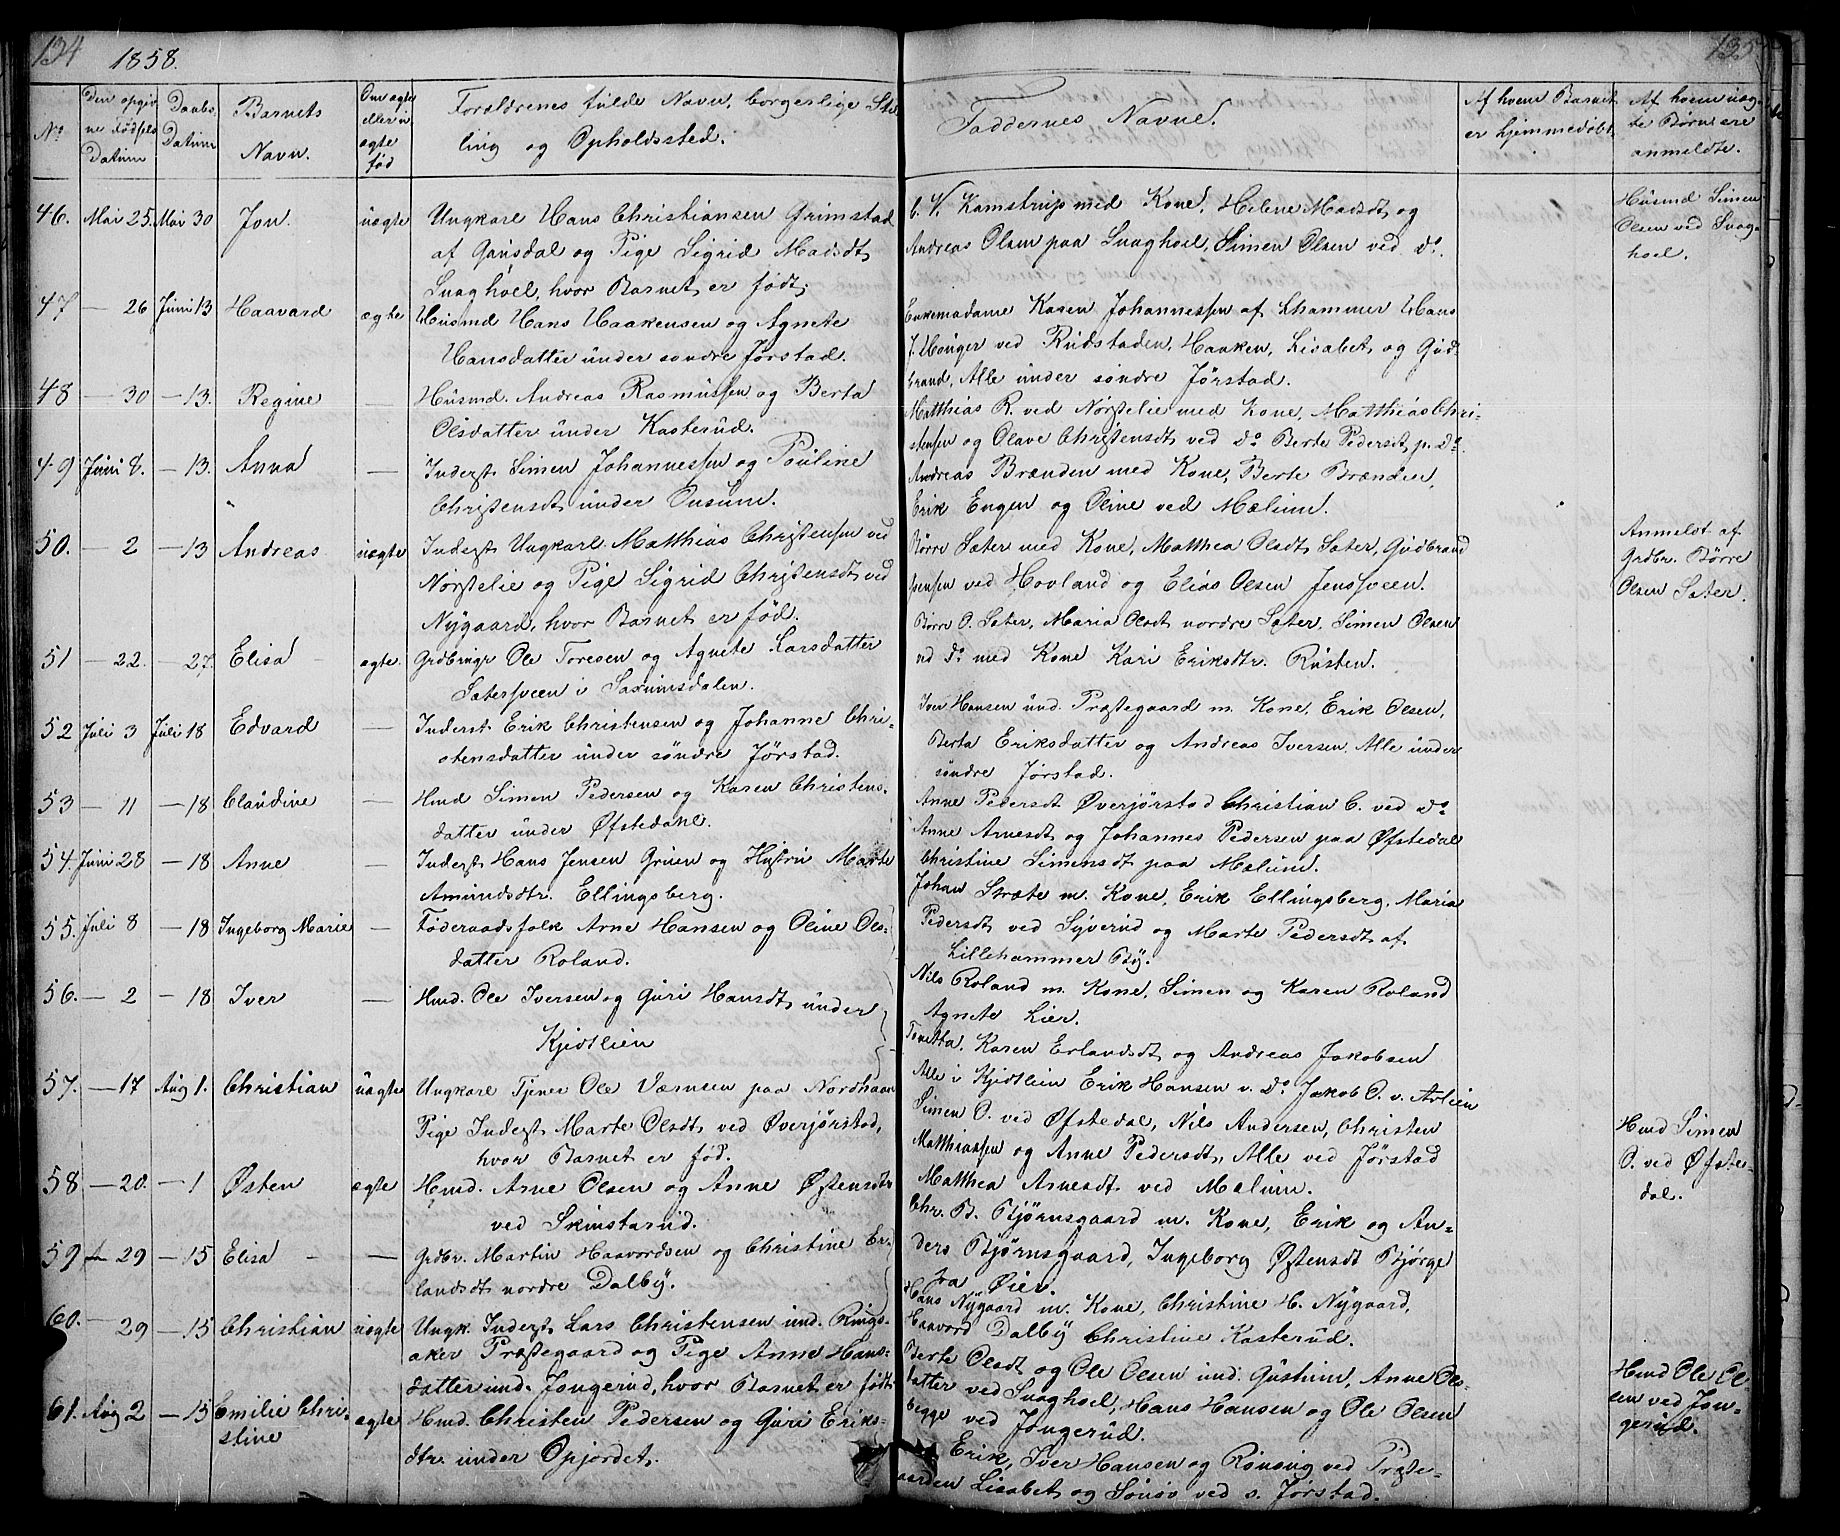 134
1858.
No
Den opgiv
ne Fødsels
Datum
Daabs
Datum
Barnets
Navn.
Om ægte
eller u
ægte
fød
Forældrenes fulde Navn, borgerlige Stil
ling og Opholdssted.
46. Mai 25. Mai 30 Jon. uægte Ungkarl Hans Christiansen Grimstad
af Gausdal og Pige Sigrid Madsdt
Svaghoel, hvor Barnet er født.
47 — 26 Juni 13 Haavard ægte Husmd Hans Haakensen og Agnete
Hansdatter under søndre Jørstad.
48 — 30 — 13. Regine — Husmd. Andreas Rasmussen og Berta
Olsdatter under Kasterud.
49 Juni 8. — 13. Anna — Inderst Simen Johannessen og Pouline
Christensdt under Onsum.
50. — 2 — 13 Andreas uægte Inderst Ungkarl Matthias Christensen ved
Nørstelie og Pige Sigrid Christensdt ved
Nygaard, hvor Barnet er fød.
51 — 22. — 27. Elisa ægte. Grdbrugr Ole Toresen og Agnete Larsdatter
Sætersveen i Saxumsdalen.
52 Juli 3 Juli 18 Edvard — Inderst Erik Christensen og Johanne Chri-
stensdatter under søndre Jørstad.
53 — 11 — 18 Claudine — Hmd Simen Pedersen og Karen Christens-
datter under Øfstedahl.
54. Juni 28 — 18 Anne — Inderst Hans Jensen Gruen og Hustru Marte
Amundsdtr. Ellingsberg.
55. Juli 8 — 18 Ingeborg Marie — Føderaadsfolk Arne Hansen og Oline Ols-
datter Roland.
56. — 2 — 18 Iver — Hmd. Ole Iversen og Guri Hansdt under
Kjødtlien
57. — 17 Aug 1. Christian uægte Ungkarl Tjener OleVærnsen paa Nordhaan
Pige Inderst Marte Olsdt ved Øverjørstad,
hvor Barnet er fød.
58 — 20. — 1 Østen ægte Hmd. Arne Olsen og Anne Østensdtr
ved Skinstarud.
59 — 29 — 15 Elisa — Grdbr. Martin Haavordsen og Christine Er-
landsdt nordre Dalby.
60. — 29 — 15 Christian uægte Ungk. Inderst Lars Christensen und. Rings-
aker Præstegaard og Pige Anne Hans-
datter und. Jongerud, hvor Barnet er født
61. Aug 2 — 15 Emilie Chri-
stine ægte Hmd. Christen Pedersen og Guri Eriks-
dtr. under Opjordet.
135
Faddernes Navne.
Af hvem Barnet
er hjemmedøbt
Af hvem uæg-
te Børn ere
anmeldte.
C. V. Kamstrup med Kone, Helene Madsdt og
Andreas Olsen paa Svaghoel, Simen Olsen ved do.
Enkemadame Karen Johannessen af Lhammer Hans
J. Monger ved Rudstaden, Haaken, Lisabet og Gud-
brand, Alle under søndre Jørstad.
Matthias R. ved Nørstelie med Kone, Matthias Chri-
stensen og Olave Christensdt ved Do Berte Pedersdt p. Do.
Andreas Brænden med Kone, Berte Brænden,
Erik Engen og Oline ved Mælum.
Børre Sæter med Kone, Matthea Olsdt Sæter, Gudbrand
ved Hovland og Elias Olsen Jenssveen.
Børre O. Sæter, Maria Olsdt nordre Sæter, Simen Olsen
ved Do med Kone Kari Eriksdtr. Rusten.
Iver Hansen und. Præstegaard m. Kone, Erik Olsen,
Berta Eriksdatter og Andreas Iversen, Alle under
søndre Jørstad.
Anne Pedersdt Øverjørstad Christian C. ved do
Anne Arnesdt og Johannes Pedersen paa Øfstedal
Christine Simensdt paa Mælum.
Johan Stræte m. Kone, Erik Ellingsberg, Maria
Pedersdt ved Syverud og Marte Pedersdt af
Lillehammer By.
Nils Roland m. Kone, Simen og Karen Roland
Agnete Lier.
Tonetta, Karen Erlandsdt og Andreas Jakobsen
Alle i Kjødtlien Erik Hansen v. Do, Jakob O. v. Avlien
Simen O. ved Øfstedal, Nils Andersen, Christen
Matthiassen og Anne Pedersdt, Alle ved Jørstad
Matthea Arnesdt ved Mælum.
Chr. B. Bjørnsgaard m. Kone, Erik og An-
ders Bjørnsgaard, Ingeborg Østensdt Bjørge
fra Øier.
Hans Nygaard m. Kone, Christine H. Nygaard,
Haavord Dalby Christine Kasterud.
Berte Olsdt og Ole Olsen und. Gushim, Anne Ols-
datter ved Svaghoel, Hans Hansen og Ole Olsen
begge ved Jongerud.
Erik, Iver Hansen og Rønnaug ved Præste-
gaarden Lisabet og ved s. Jørstad.
Husmd Simen
Olsen ved Svag-
hoel.
Anmeldt af
Grdbr. Børre
Olsen Sæter.
Hmd Simen
O. ved Øfste-
dal.
Hmd Ole Ol-
sen ved Jon-
gerud.